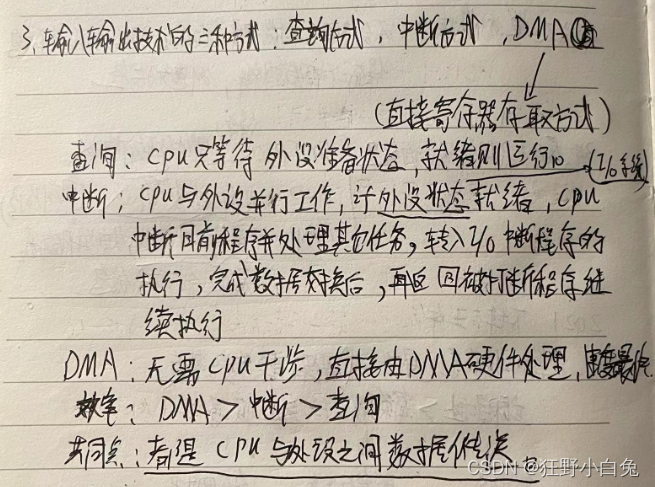 3、输入输出技术的三种方式：查询方式，中断方式，DMA
(直接寄存器存取方式)
查询：CPU只等待外设准备状态，就绪则运行IO (I/O系统)
中断：CPU与外设并行工作，外设状态就绪，CPU
中断目前程序并处理其它任务，转入I/O中断程序的
执行，完成数据交换后，再返回被打断程序继
续执行
DMA：无需CPU干涉，直接由DMA硬件处理，速度最快
效率：DMA > 中断 > 查询
共同点：都是CPU与外设之间数据传送。
CSDN @狂野小白兔